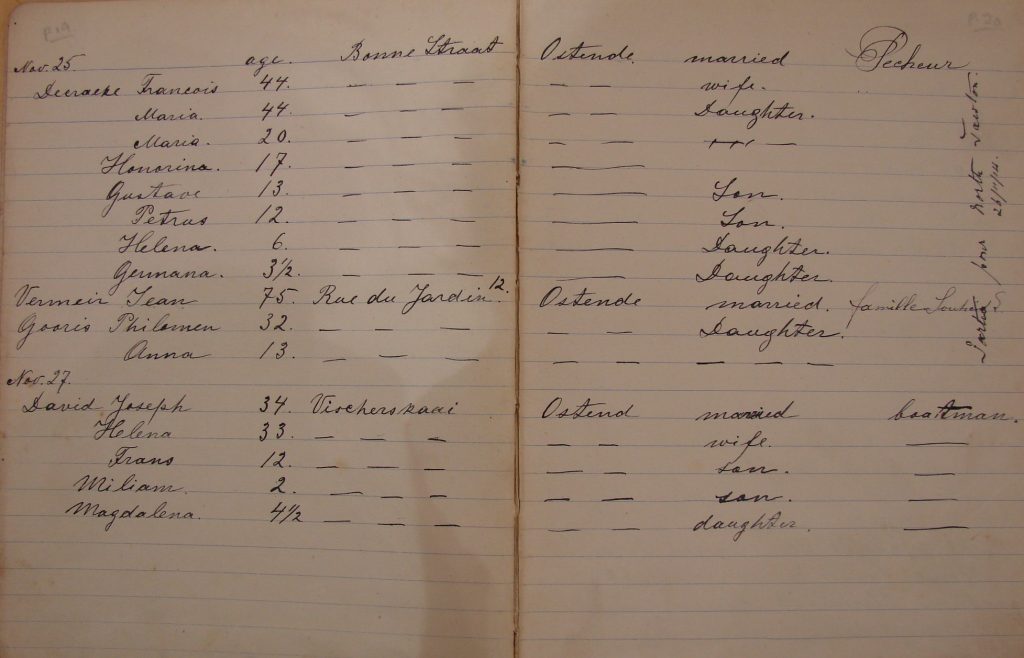 Nov. 25 age. Bonne Straat Ostende. married Pecheur
Decraeke Francois 44. — — — — — wife.
Maria. 44. — — — — — Daughter.
Maria. 20. — — — — — ,, ,, —
Honorina. 17. — — — —
Gustave 13. — — — — Son.
Petrus 12. — — — — Son.
Helena. 6. — — — — Daughter.
Germana. 3½. — — — — Daughter.
Vermeir Jean 75. Rue du Jardin 12. Ostende married. famille
Gooris Philomen 32. — — — — — Daughter.
Anna 13. — — — — — — —
Nov. 27.
David Joseph 34. Visscherskaai Ostend married boatman.
Helena 33. — — — — — wife. —
Frans 12. — — — — — son. —
Miliam. 2. — — — — — son. —
Magdalena. 4½ — — — — — daughter. —
pour North Tawton.
26/11/14.